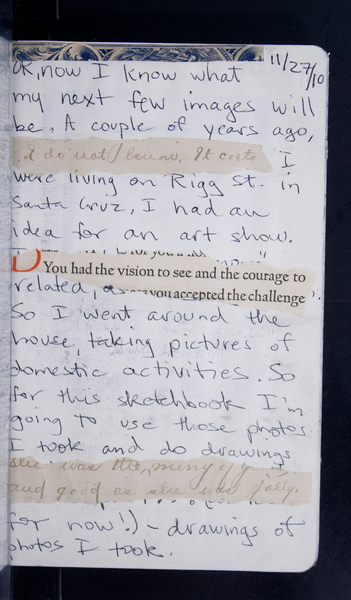 11/27/10
OK, now I know what
my next few images will
be. A couple of years ago,
I do not know. It costs I
were living on Rigg St. in
Santa Cruz, I had an
idea for an art show.
You had the vision to see and the courage to
related, as you accepted the challenge
So I went around the
house, taking pictures of
domestic activities. So
for this sketchbook I'm
going to use those photos
I took and do drawings
she was the
and good as she was jolly.
for now!) - drawings of
photos I took.